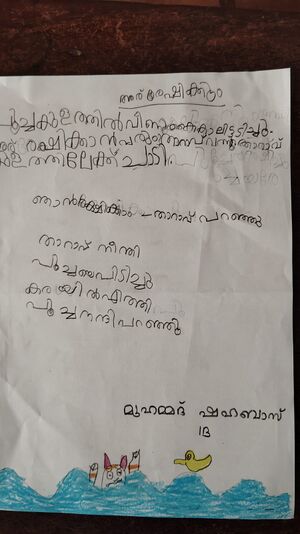 ആര് രക്ഷിക്കും
പൂച്ചകുളത്തിൽവീണു കൈകാലിട്ടടിച്ചു.
ആര് രക്ഷിക്കാൻ വരും താറാവ്
കുളത്തിലേക്ക് ചാടി.
ഞാൻരക്ഷിക്കാം താറാവ് പറഞ്ഞു
താറാവ് നീന്തി
പൂച്ചയെപിടിച്ചു
കരയിൽഎത്തി
പൂച്ചനന്ദിപറഞ്ഞു
മുഹമ്മദ് ഷഹബാസ്
1B